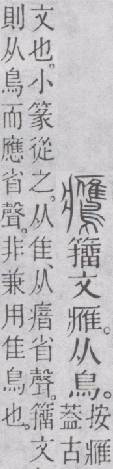 鷹籒文𤸰。从鳥。按𤸰
葢古
文也。小篆從之。从隹、从瘖省聲。籒文
則从鳥而應省聲。非兼用隹鳥也。